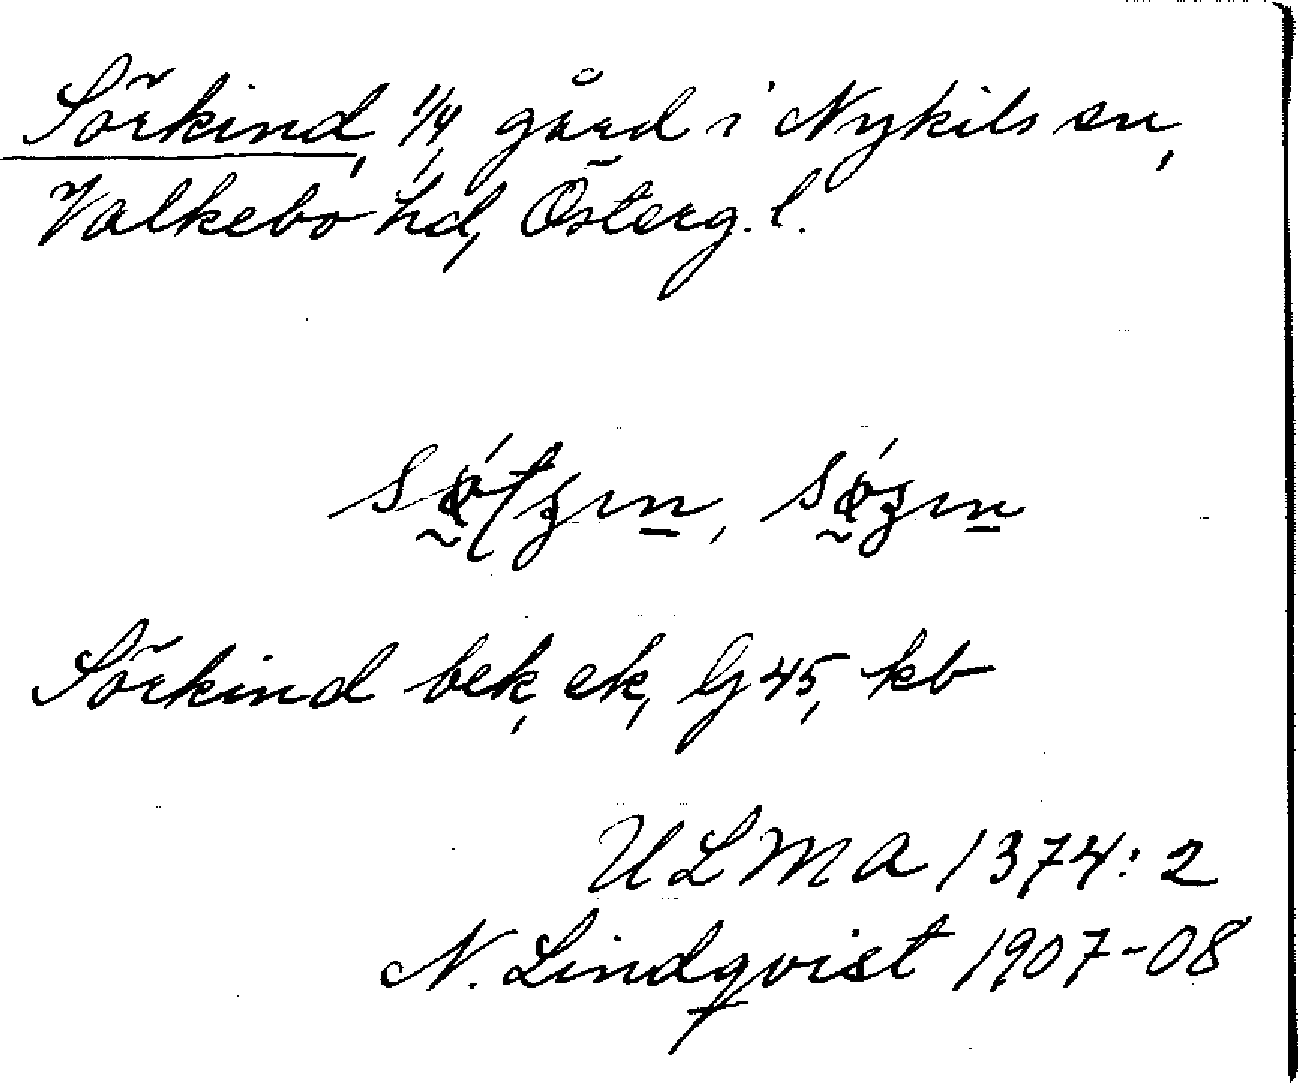 Sörkind, 1/4 gård i Nykils sn,
Valkebo hd, Österg. l.
Sörkind bek, ek, G 45, kb
ULMA 1374:2
N. Lindqvist 1907-08